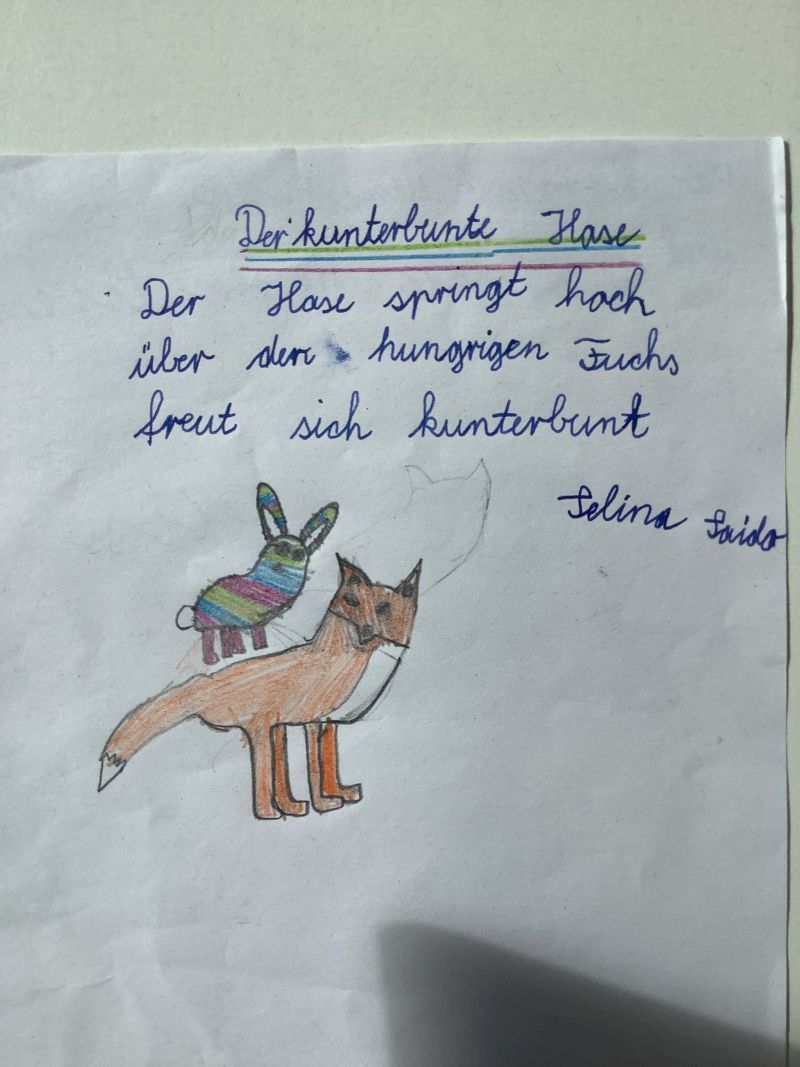 Der kunterbunte Hase
Der Hase springt hoch
über den hungrigen Fuchs
freut sich kunterbunt
Selina Saido